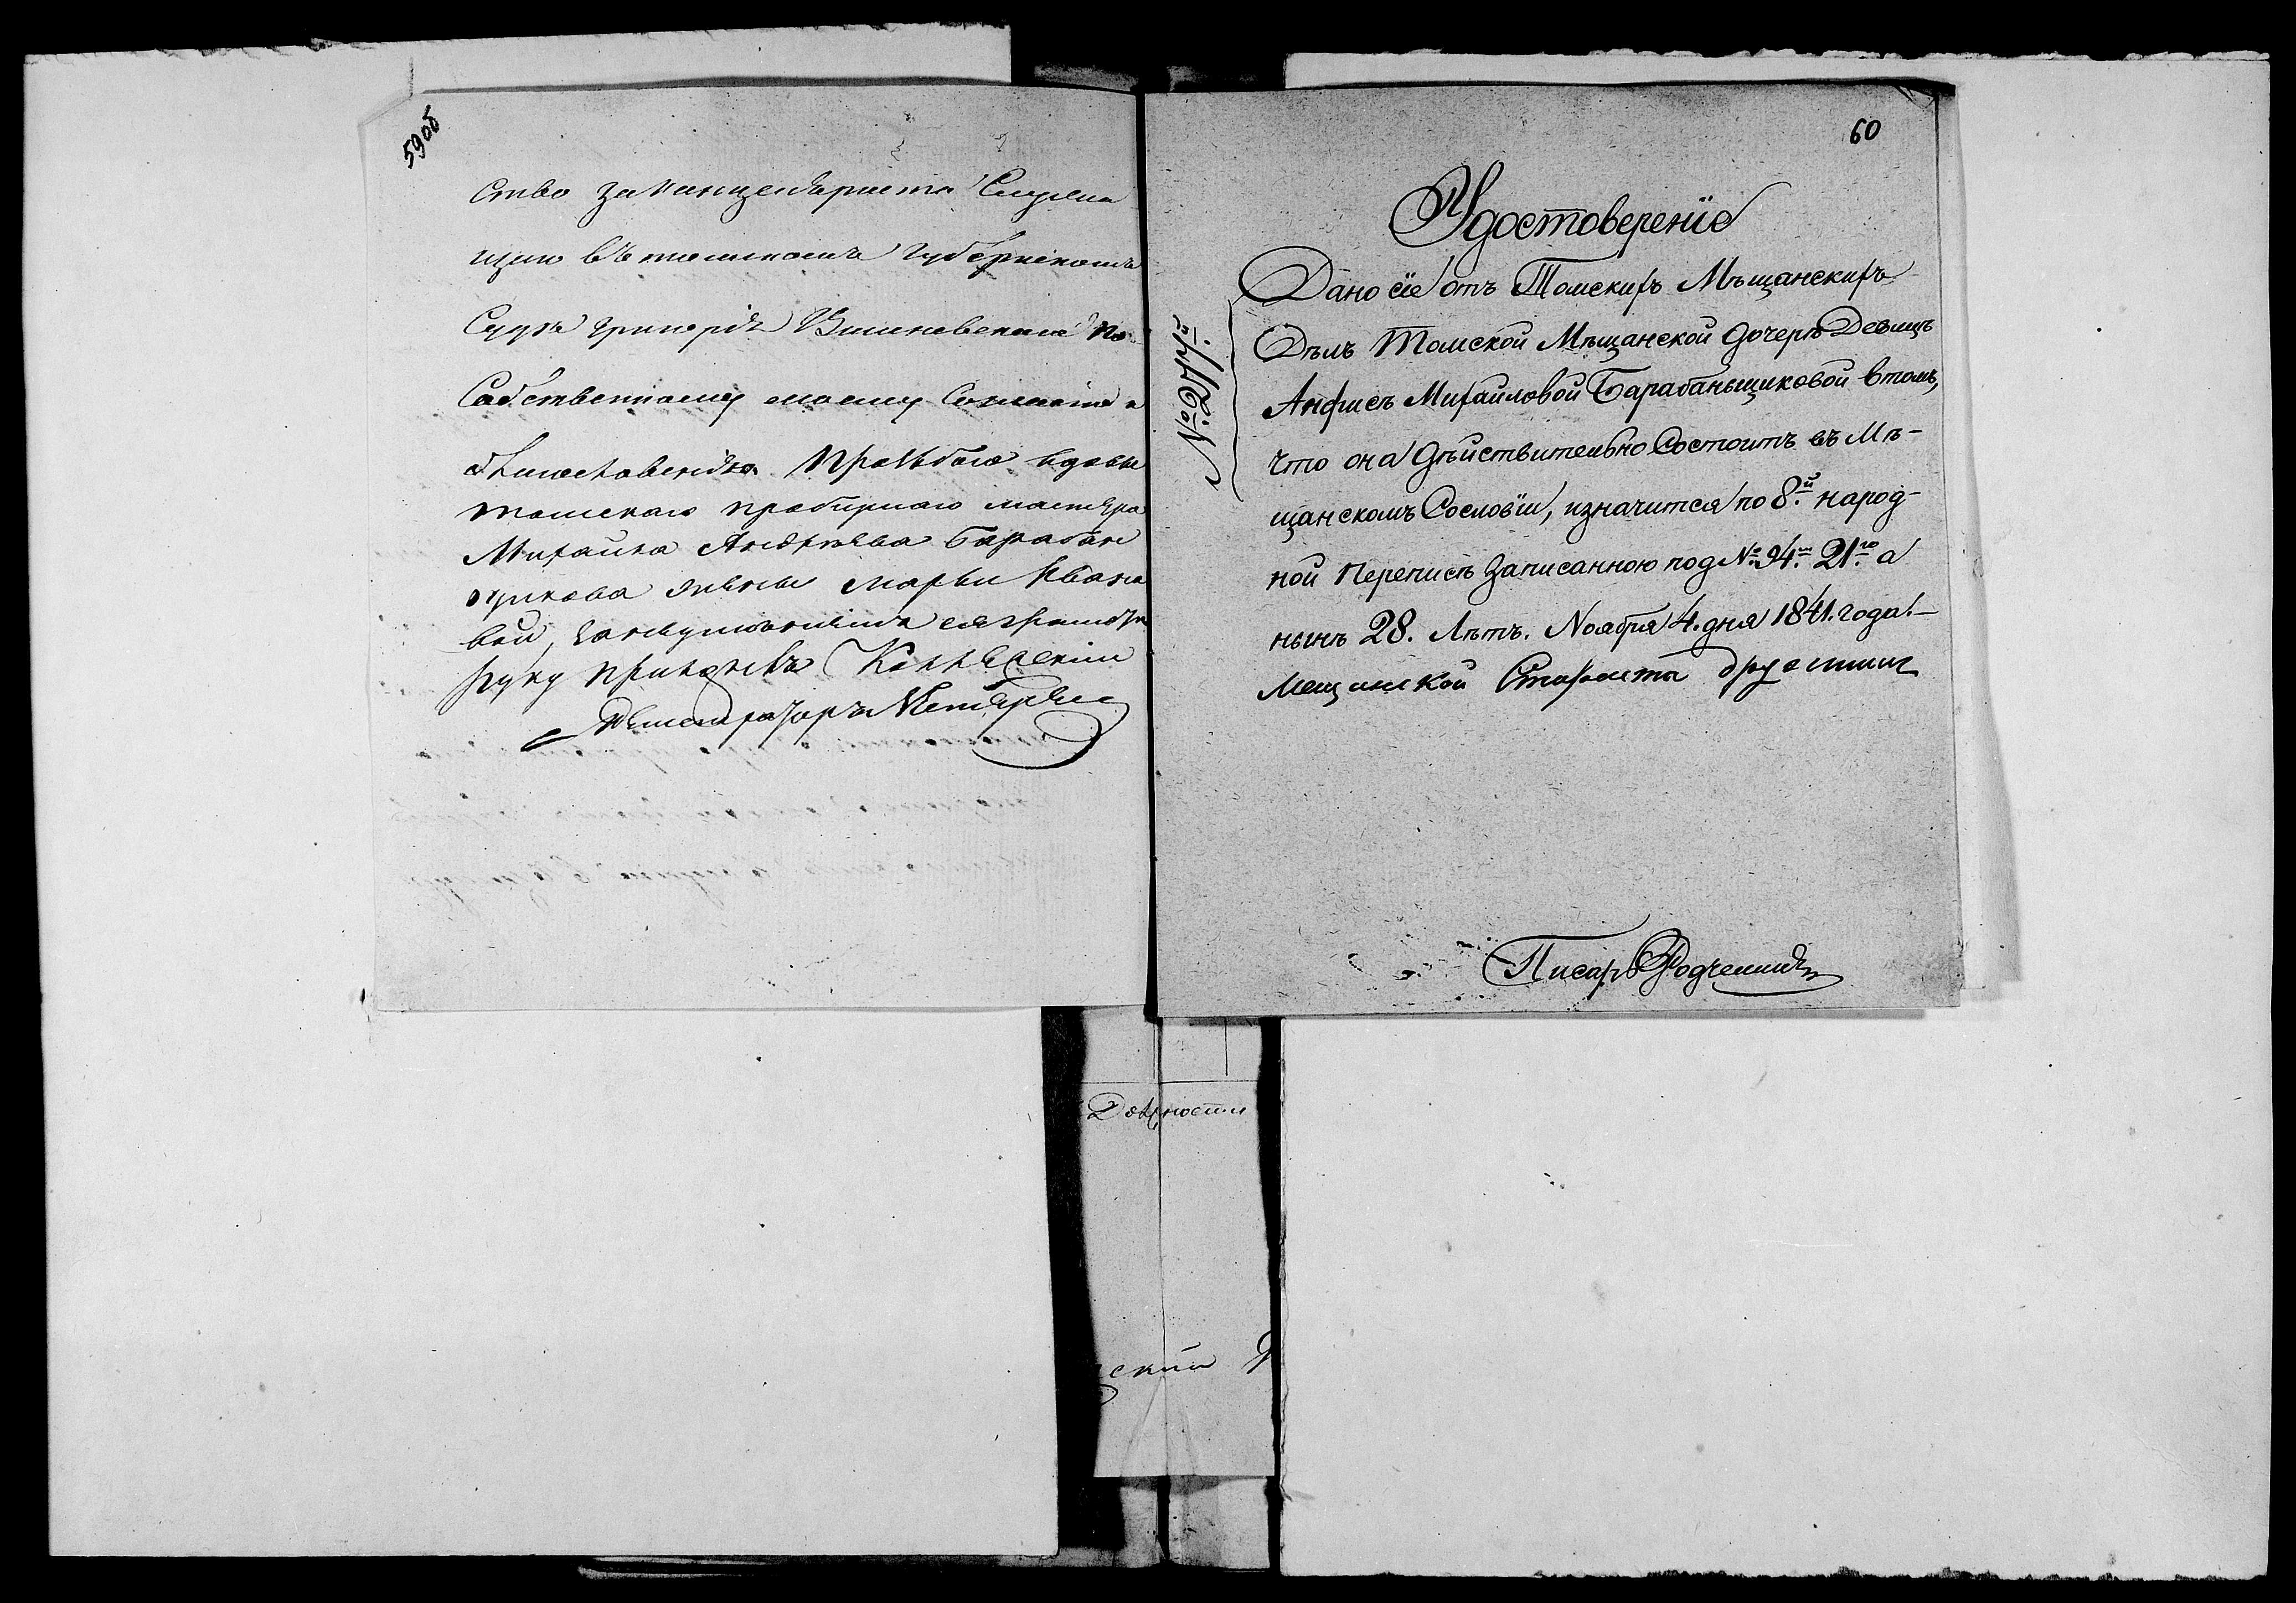 59об
ство за канцеляриста Служа
щаго въ томскомъ губернскомъ
Суде Григорія Вишневскаго по
Собственному моему Согласію и
благословенію Прозьбою вдовы
томскаго пробирнаго мастера
Михайла Андреева Барабан
щикова жены Марьи Ивано
вой, за неумѣніемъ ея грамотѣ
руку приложилъ Коллежскій
Регистраторъ
60
Удостоверенïе
№ 277й.
Дано сїе отъ Томскихъ Мѣщанскихъ
Дѣлъ Томской Мѣщанской дочерѣ Девицѣ
Анфисѣ Михайловой Барабаньщиковой втомъ,
что она дѣйствительно Состоитъ въ Мѣ-
щанскомъ Сословїи, изначится по 8й. народ-
ной переписѣ Записанною под № 94м. 21го. а
нынѣ 28. Лѣтъ. Ноября 4. дня 1841. года!-
Мещанской Староста
Писарь Родченинъ
Должности
ский